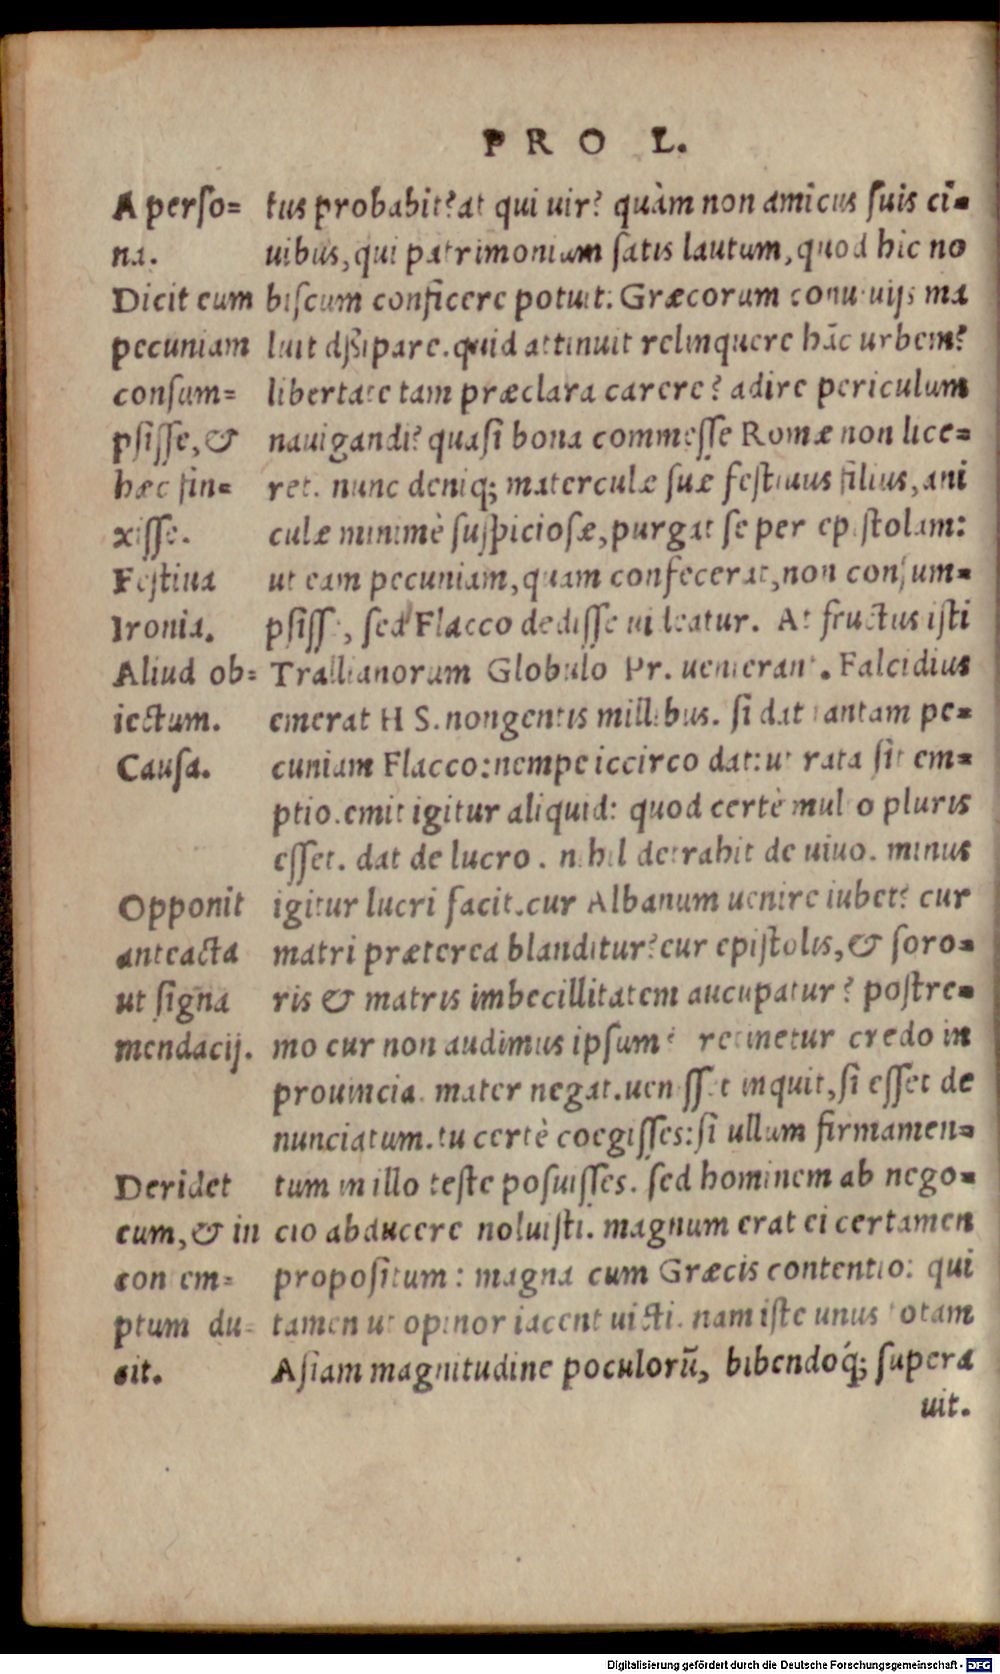 PRO L.
A perso=
na.
Dicit eum
pecuniam
consum=
psisse, &
hæc fin=
xisse.
Festiua
Ironia.
Aliud ob=
iectum.
Causa.
Opponit
anteacta
ut signa
mendacij.
Deridet
eum, & in
con em=
ptum du=
cit.
tus probabit? at qui uir? quàm non amicus suis ci=
uibus, qui patrimonium satis lautum, quod hic no
biscum conficere potuit. Græcorum conuiuijs ma
luit dissipare. quid attinuit relinquere hāc urbem?
libertate tam præclara carere? adire periculum
nauigandi? quasi bona commesse Romæ non lice=
ret. nunc deniq; materculæ suæ festiuus filius, ani
culæ minimè suspiciosæ, purgat se per epistolam:
ut eam pecuniam, quam confecerat, non consum=
psisse, sed Flacco dedisse uideatur. At fructus isti
Trallianorum Globulo Pr. uenierant. Falcidius
emerat H S. nongentis millibus. si dat tantam pe=
cuniam Flacco: nempe iccirco dat: ut rata sit em=
ptio. emit igitur aliquid: quod certè multo pluris
esset. dat de lucro. nihil detrahit de uiuo. minus
igitur lucri facit. cur Albanum uenire iubet? cur
matri præterea blanditur? cur epistolis, & soro=
ris & matris imbecillitatem aucupatur? postre=
mo cur non audimus ipsum? retinetur credo in
prouincia. mater negat. uenisset inquit, si esset de
nunciatum. tu certè coegisses: si ullum firmamen=
tum in illo teste posuisses. sed hominem ab nego=
cio abducere noluisti. magnum erat ei certamen
propositum: magna cum Græcis contentio: qui
tamen ut opinor iacent uicti. nam iste unus totam
Asiam magnitudine poculorū, bibendoq́; supera
uit.
Digitalisierung gefördert durch die Deutsche Forschungsgemeinschaft - DFG